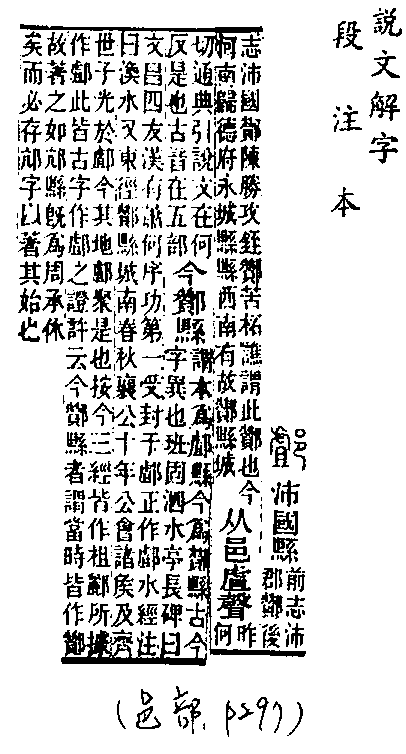 說文解字
段注本
沛國縣 前志沛
郡酇後
志沛國酇陳勝攻銍酇苦柘譙謂此酇也今
河南歸德府永城縣縣西南有故酇縣城
从邑虘聲 昨
何
切通典引說文在何
反是也古音在五部
今酇縣 謂本爲䣜縣今爲酇縣古今
字異也班固泗水亭長碑曰
文昌四友漢有蕭何序功第一受封于䣜正作䣜水經注
曰渙水又東逕酇縣城南春秋襄公十年公會諸矦及齊
世子光於䣜今其地䣜聚是也按今三經皆作柤䣜所據
作䣜此皆古字作䣜之證許云今酇縣者謂當時皆作酇
故著之如邟縣旣爲周承休
矣而必存邟字以著其始也
(邑部, p297)